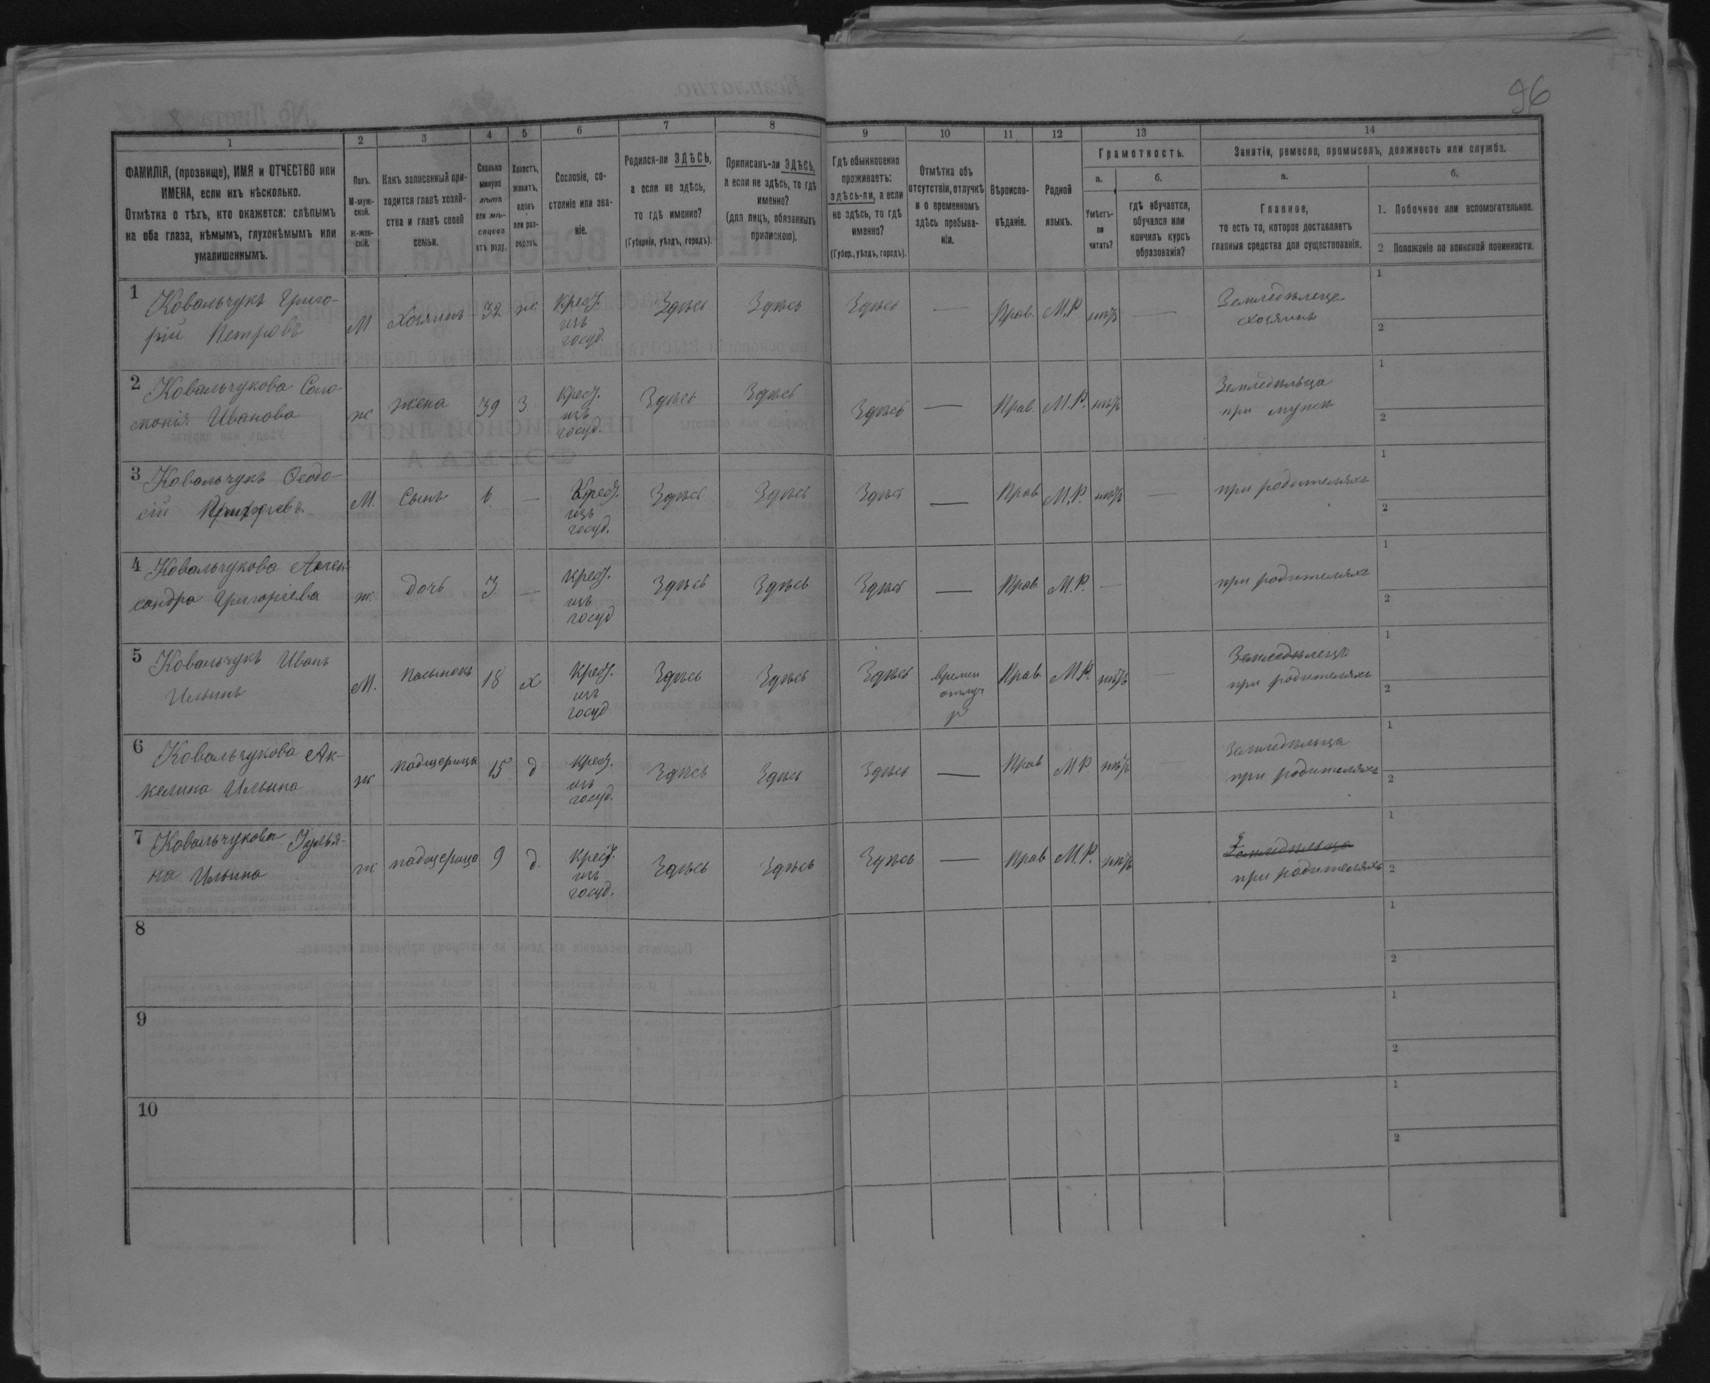 96
1 2 3 4 5 6 7 8 9 10 11 12 13 14
ФАМИЛІЯ, (прозвище), ИМЯ и ОТЧЕСТВО или
ИМЕНА, если ихъ нѣсколько.
Отмѣтка о тѣхъ, кто окажется: слѣпымъ
на оба глаза, нѣмымъ, глухонѣмымъ или
умалишеннымъ.
Полъ.
М-муж-
ской.
ж-жен-
скій.
Какъ записанный при-
ходится главѣ хозяй-
ства и главѣ своей
семьи.
Сколько
минуло
лѣтъ
или мѣ-
сяцевъ
отъ роду.
Холостъ,
женатъ,
вдовъ
или раз-
веденъ.
Сословіе, со-
стояніе или зва-
ніе.
Родился-ли ЗДѢСЬ,
а если не здѣсь,
то гдѣ именно?
(Губернія, уѣздъ, городъ).
Приписанъ-ли ЗДѢСЬ,
а если не здѣсь, то гдѣ
именно?
(для лицъ, обязанныхъ
припискою).
Гдѣ обыкновенно
проживаетъ:
здѣсь-ли, а если
не здѣсь, то гдѣ
именно?
(Губер., уѣздъ, городъ).
Отмѣтка объ
отсутствіи, отлучкѣ
и о временномъ
здѣсь пребыва-
ніи.
Вѣроиспо-
вѣданіе.
Родной
языкъ.
Грамотность.
а.
Умѣетъ-
ли
читать?
б.
гдѣ обучается,
обучался или
кончилъ курсъ
образованія?
Занятіе, ремесло, промыселъ, должность или служба.
а.
Главное,
то есть то, которое доставляетъ
главныя средства для существованія.
б.
1. Побочное или вспомогательное.
2 Положеніе по воинской повинности.
1 Ковальчукъ Григо-
рій Петровъ
М Хозяинъ 32 ж Крест.
изъ
госуд.
Здѣсь Здѣсь Здѣсь — Прав. М.Р. нѣтъ —
Землѣделецъ
хозяинъ
1
2
2 Ковальчукова Соло-
монія Иванова
ж жена 39 З Крест.
изъ
госуд.
Здѣсь Здѣсь Здѣсь — Прав. М.Р. нѣтъ
Земледѣльца
при мужѣ
1
2
3 Ковальчукъ Ѳеодо-
сій Григорьевъ
М. Сынъ 6 — Крест.
изъ
госуд.
Здѣсь Здѣсь Здѣсь — Прав М.Р. нѣтъ —
при родителяхъ
1
2
4 Ковальчукова Алек-
сандра Григоріева
ж дочь 3 — Крест.
изъ
госуд
Здѣсь Здѣсь Здѣсь — Прав М.Р. —
при родителяхъ
1
2
5 Ковальчукъ Иванъ
Ильинъ
М. пасынокъ 18 х Крест.
изъ
госуд
Здѣсь Здѣсь Здѣсь времен
отлуч
Прав М.Р. нѣтъ —
Земледѣлецъ
при родителяхъ
1
2
6 Ковальчукова Ак-
келина Ильина
ж падщерица 15 д Крест.
изъ
госуд.
Здѣсь Здѣсь Здѣсь — Прав М.Р. нѣтъ
Земледѣльца
при родителяхъ
1
2
7 Ковальчукова Іулья-
на Ильина
ж падщерица 9 д. Крест.
изъ
госуд.
Здѣсь Здѣсь Здѣсь — Прав М.Р. нѣтъ
Земледѣльца
при родителяхъ
1
2
8
1
2
9
1
2
10
1
2